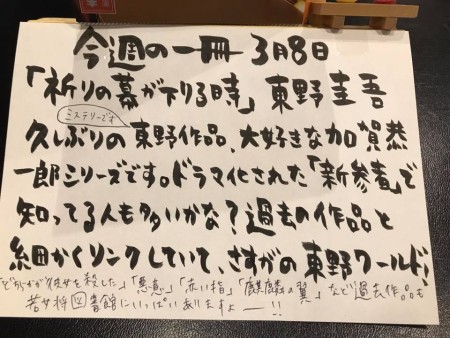 今週の一冊 3月8日
「祈りの幕が下りる時」東野圭吾
ミステリーです
久しぶりの東野作品、大好きな加賀恭
一郎シリーズです。ドラマ化された「新参者」で
知ってる人も多いかな?過去の作品と
細かくリンクしていて、さすがの東野ワールド!
「どちらかが彼女を殺した」「悪意」「赤い指」「麒麟の翼」など過去作品も
若女将図書館にいっぱいありますよー!!